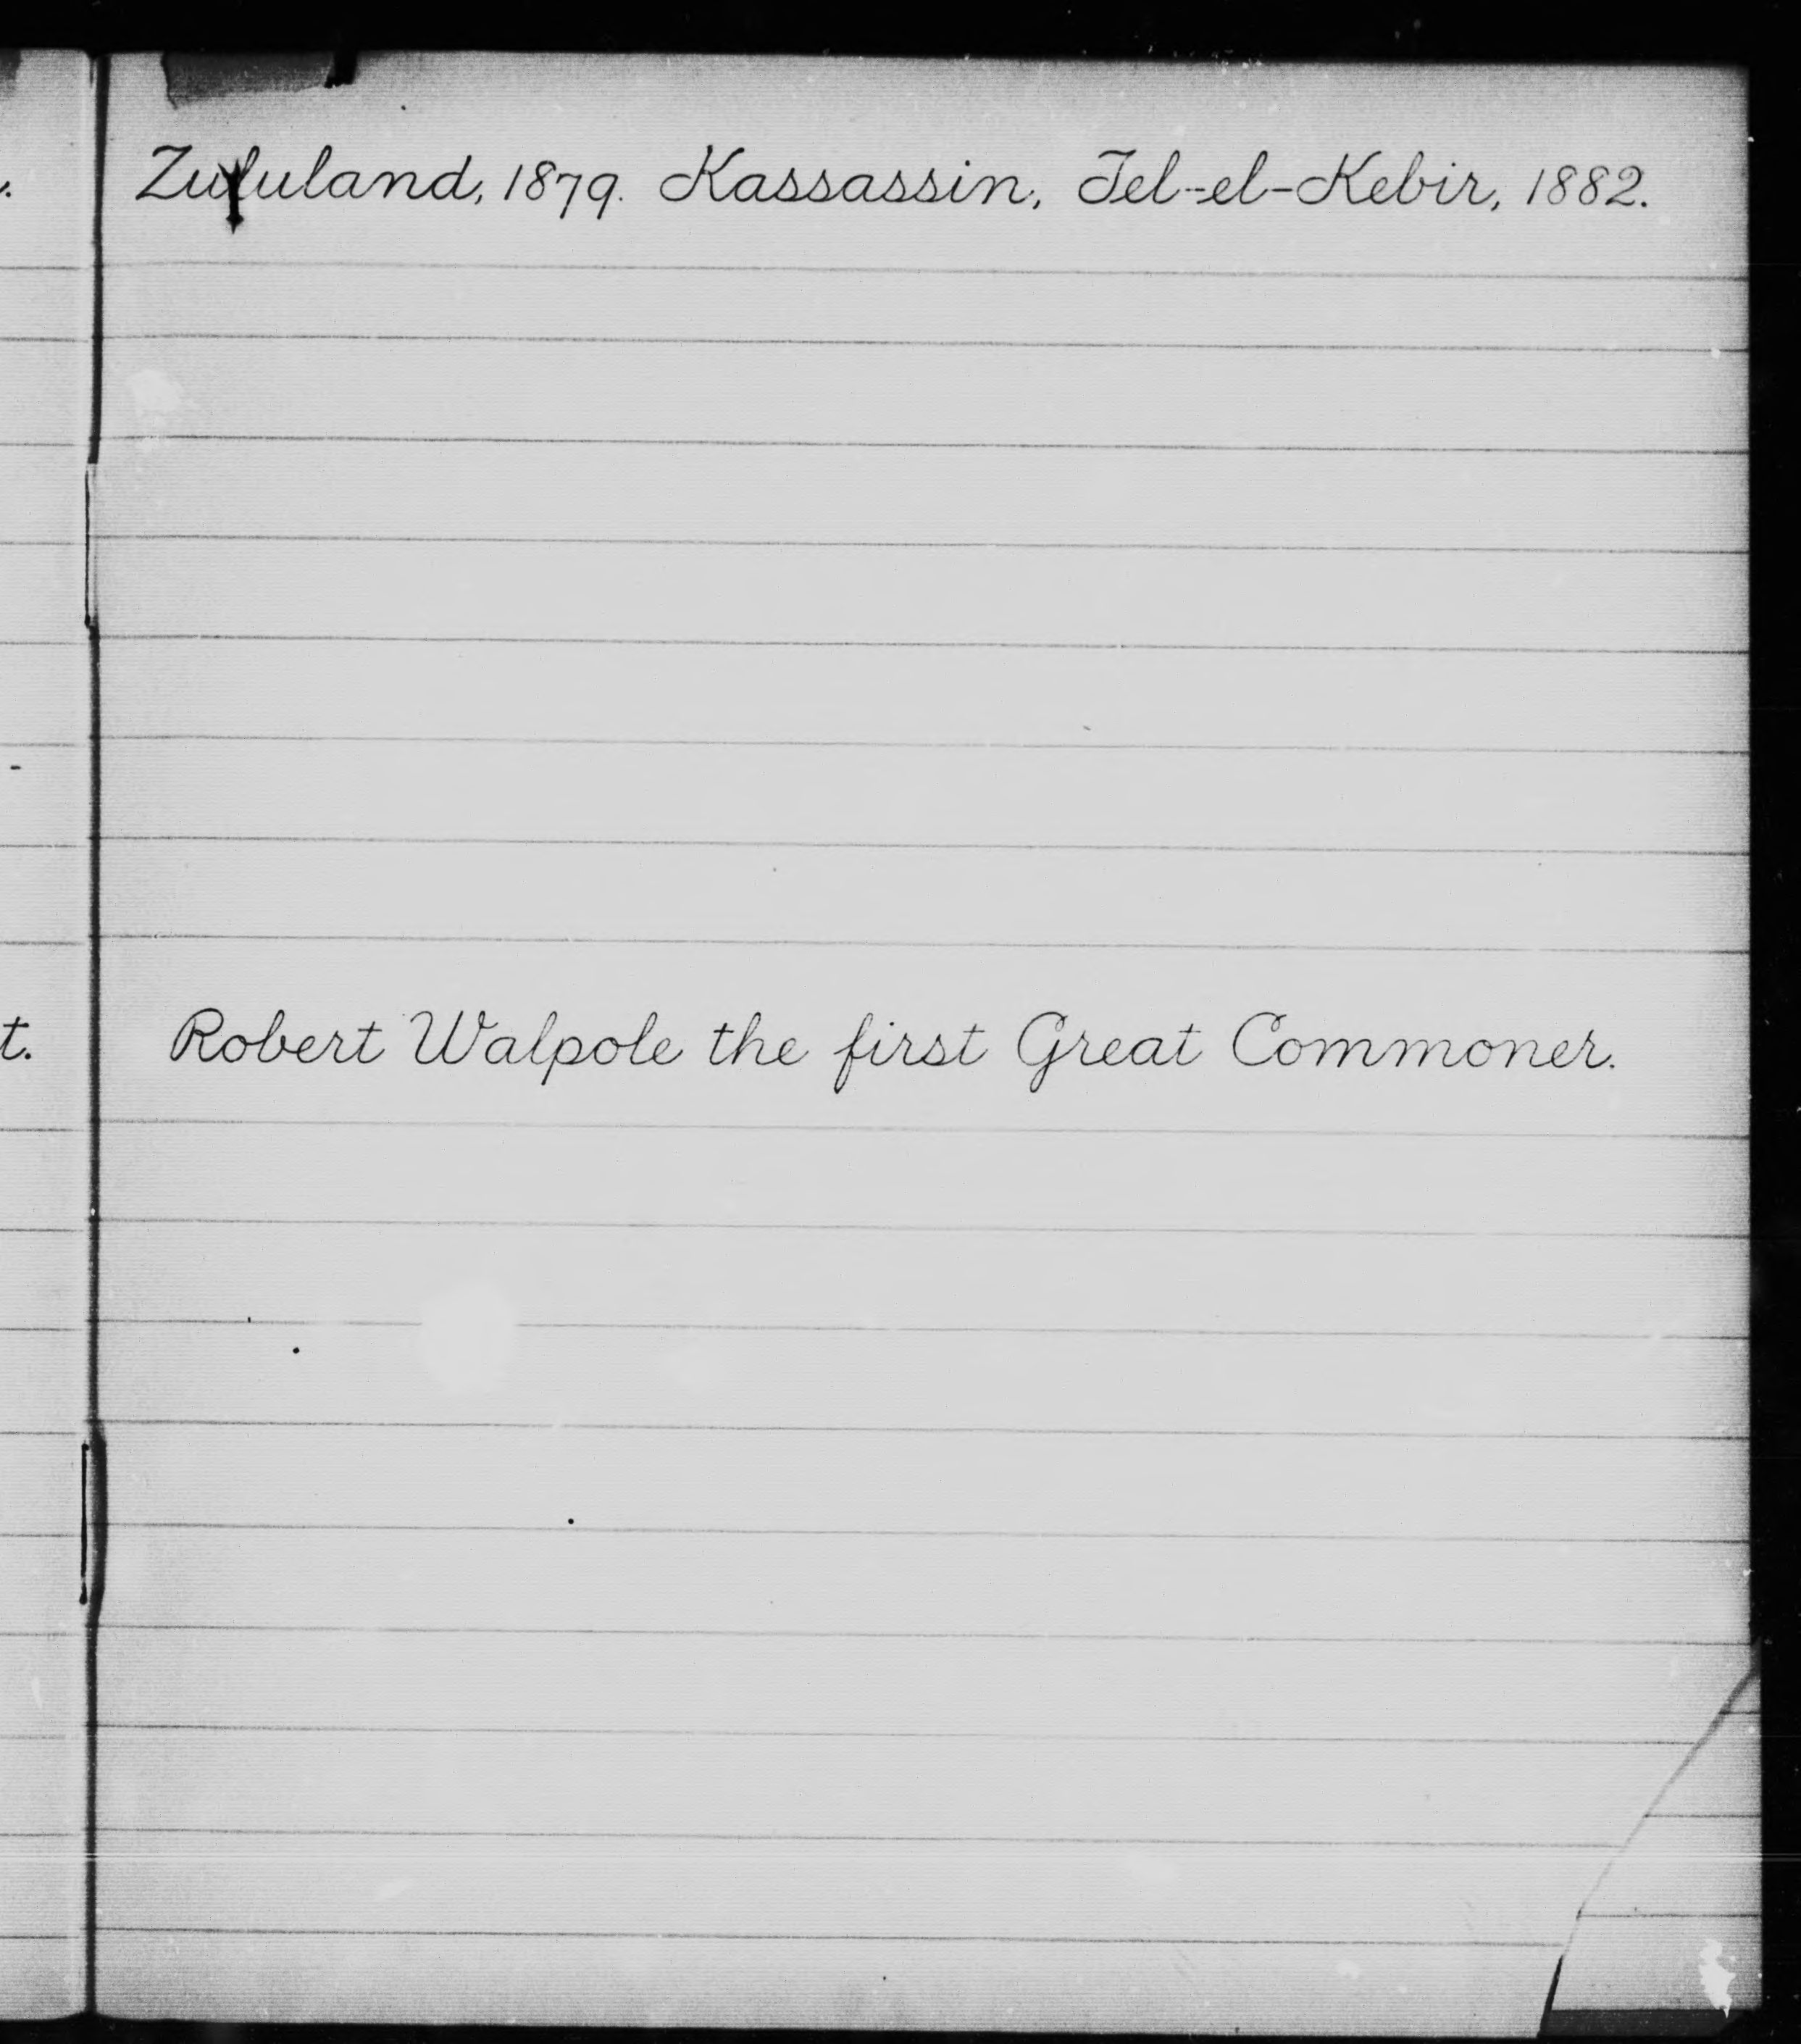 Zululand, 1879. Kassassin, Tel-el-Kebir, 1882.
t. Robert Walpole the first Great Commoner.